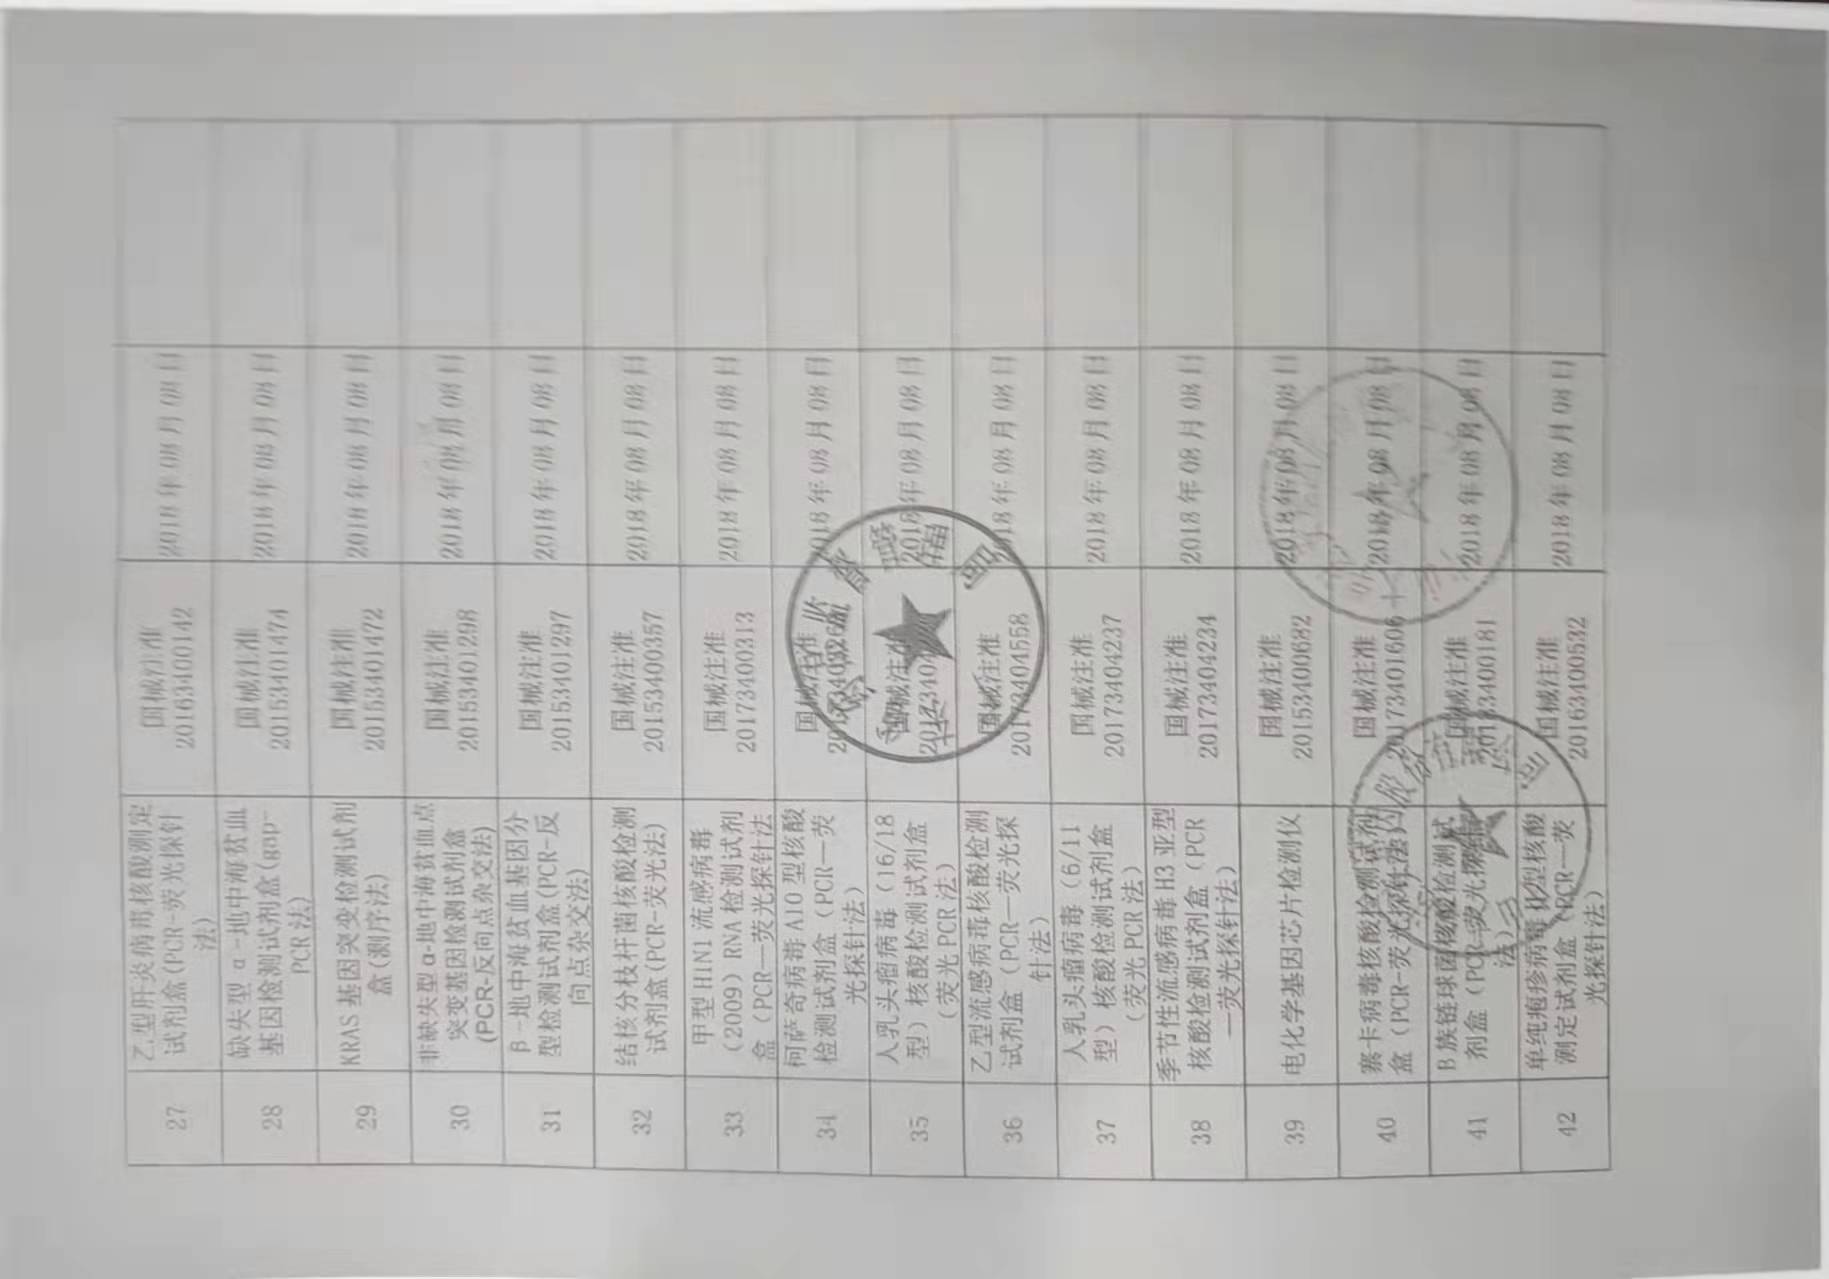 27
乙型肝炎病毒核酸测定
试剂盒(PCR-荧光探针
法)
国械注准
20163400142
2018年08月08日
28
缺失型 α-地中海贫血
基因检测试剂盒(gap-
PCR法)
国械注准
20153401474
2018年08月08日
29
KRAS基因突变检测试剂
盒(测序法)
国械注准
20153401472
2018年08月08日
30
非缺失型α-地中海贫血点
突变基因检测试剂盒
(PCR-反向点杂交法)
国械注准
20153401298
2018年08月08日
31
β-地中海贫血基因分
型检测试剂盒(PCR-反
向点杂交法)
国械注准
20153401297
2018年08月08日
32
结核分枝杆菌核酸检测
试剂盒(PCR-荧光法)
国械注准
20153400357
2018年08月08日
33
甲型H1N1流感病毒
（2009）RNA检测试剂
盒（PCR—荧光探针法
国械注准
20173400313
2018年08月08日
34
柯萨奇病毒A10型核酸
检测试剂盒（PCR—荧
光探针法）
国械注准
2018年08月08日
35
人乳头瘤病毒（16/18
型）核酸检测试剂盒
（荧光PCR法）
国械注准
2018年08月08日
36
乙型流感病毒核酸检测
试剂盒（PCR—荧光探
针法）
国械注准
20173404558
2018年08月08日
37
人乳头瘤病毒（6/11
型）核酸检测试剂盒
（荧光PCR法）
国械注准
20173404237
2018年08月08日
38
季节性流感病毒H3亚型
核酸检测试剂盒（PCR
—荧光探针法）
国械注准
20173404234
2018年08月08日
39
电化学基因芯片检测仪
国械注准
20153400682
2018年08月08日
40
寨卡病毒核酸检测试剂
盒（PCR-荧光探针法）
国械注准
20173401606
2018年08月08日
41
B族链球菌核酸检测试
剂盒（PCR-荧光探针
法）
国械注准
20183400181
2018年08月08日
42
单纯疱疹病毒 型核酸
测定试剂盒（PCR—荧
光探针法）
国械注准
20163400532
2018年08月08日